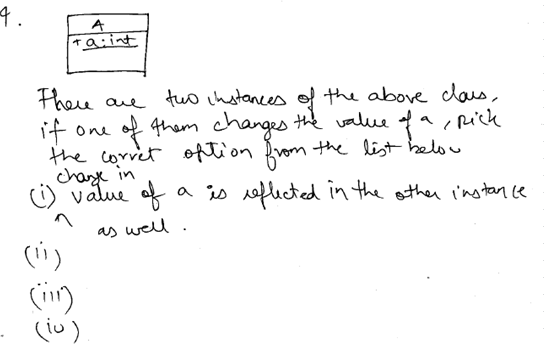 4.
A
+ a: int
There are two instances of the above class,
if one of them changes the value of a, pick
the correct option from the list below
change in
(i) value of a is reflected in the other instance
as well.
(ii)
(iii)
(iv)